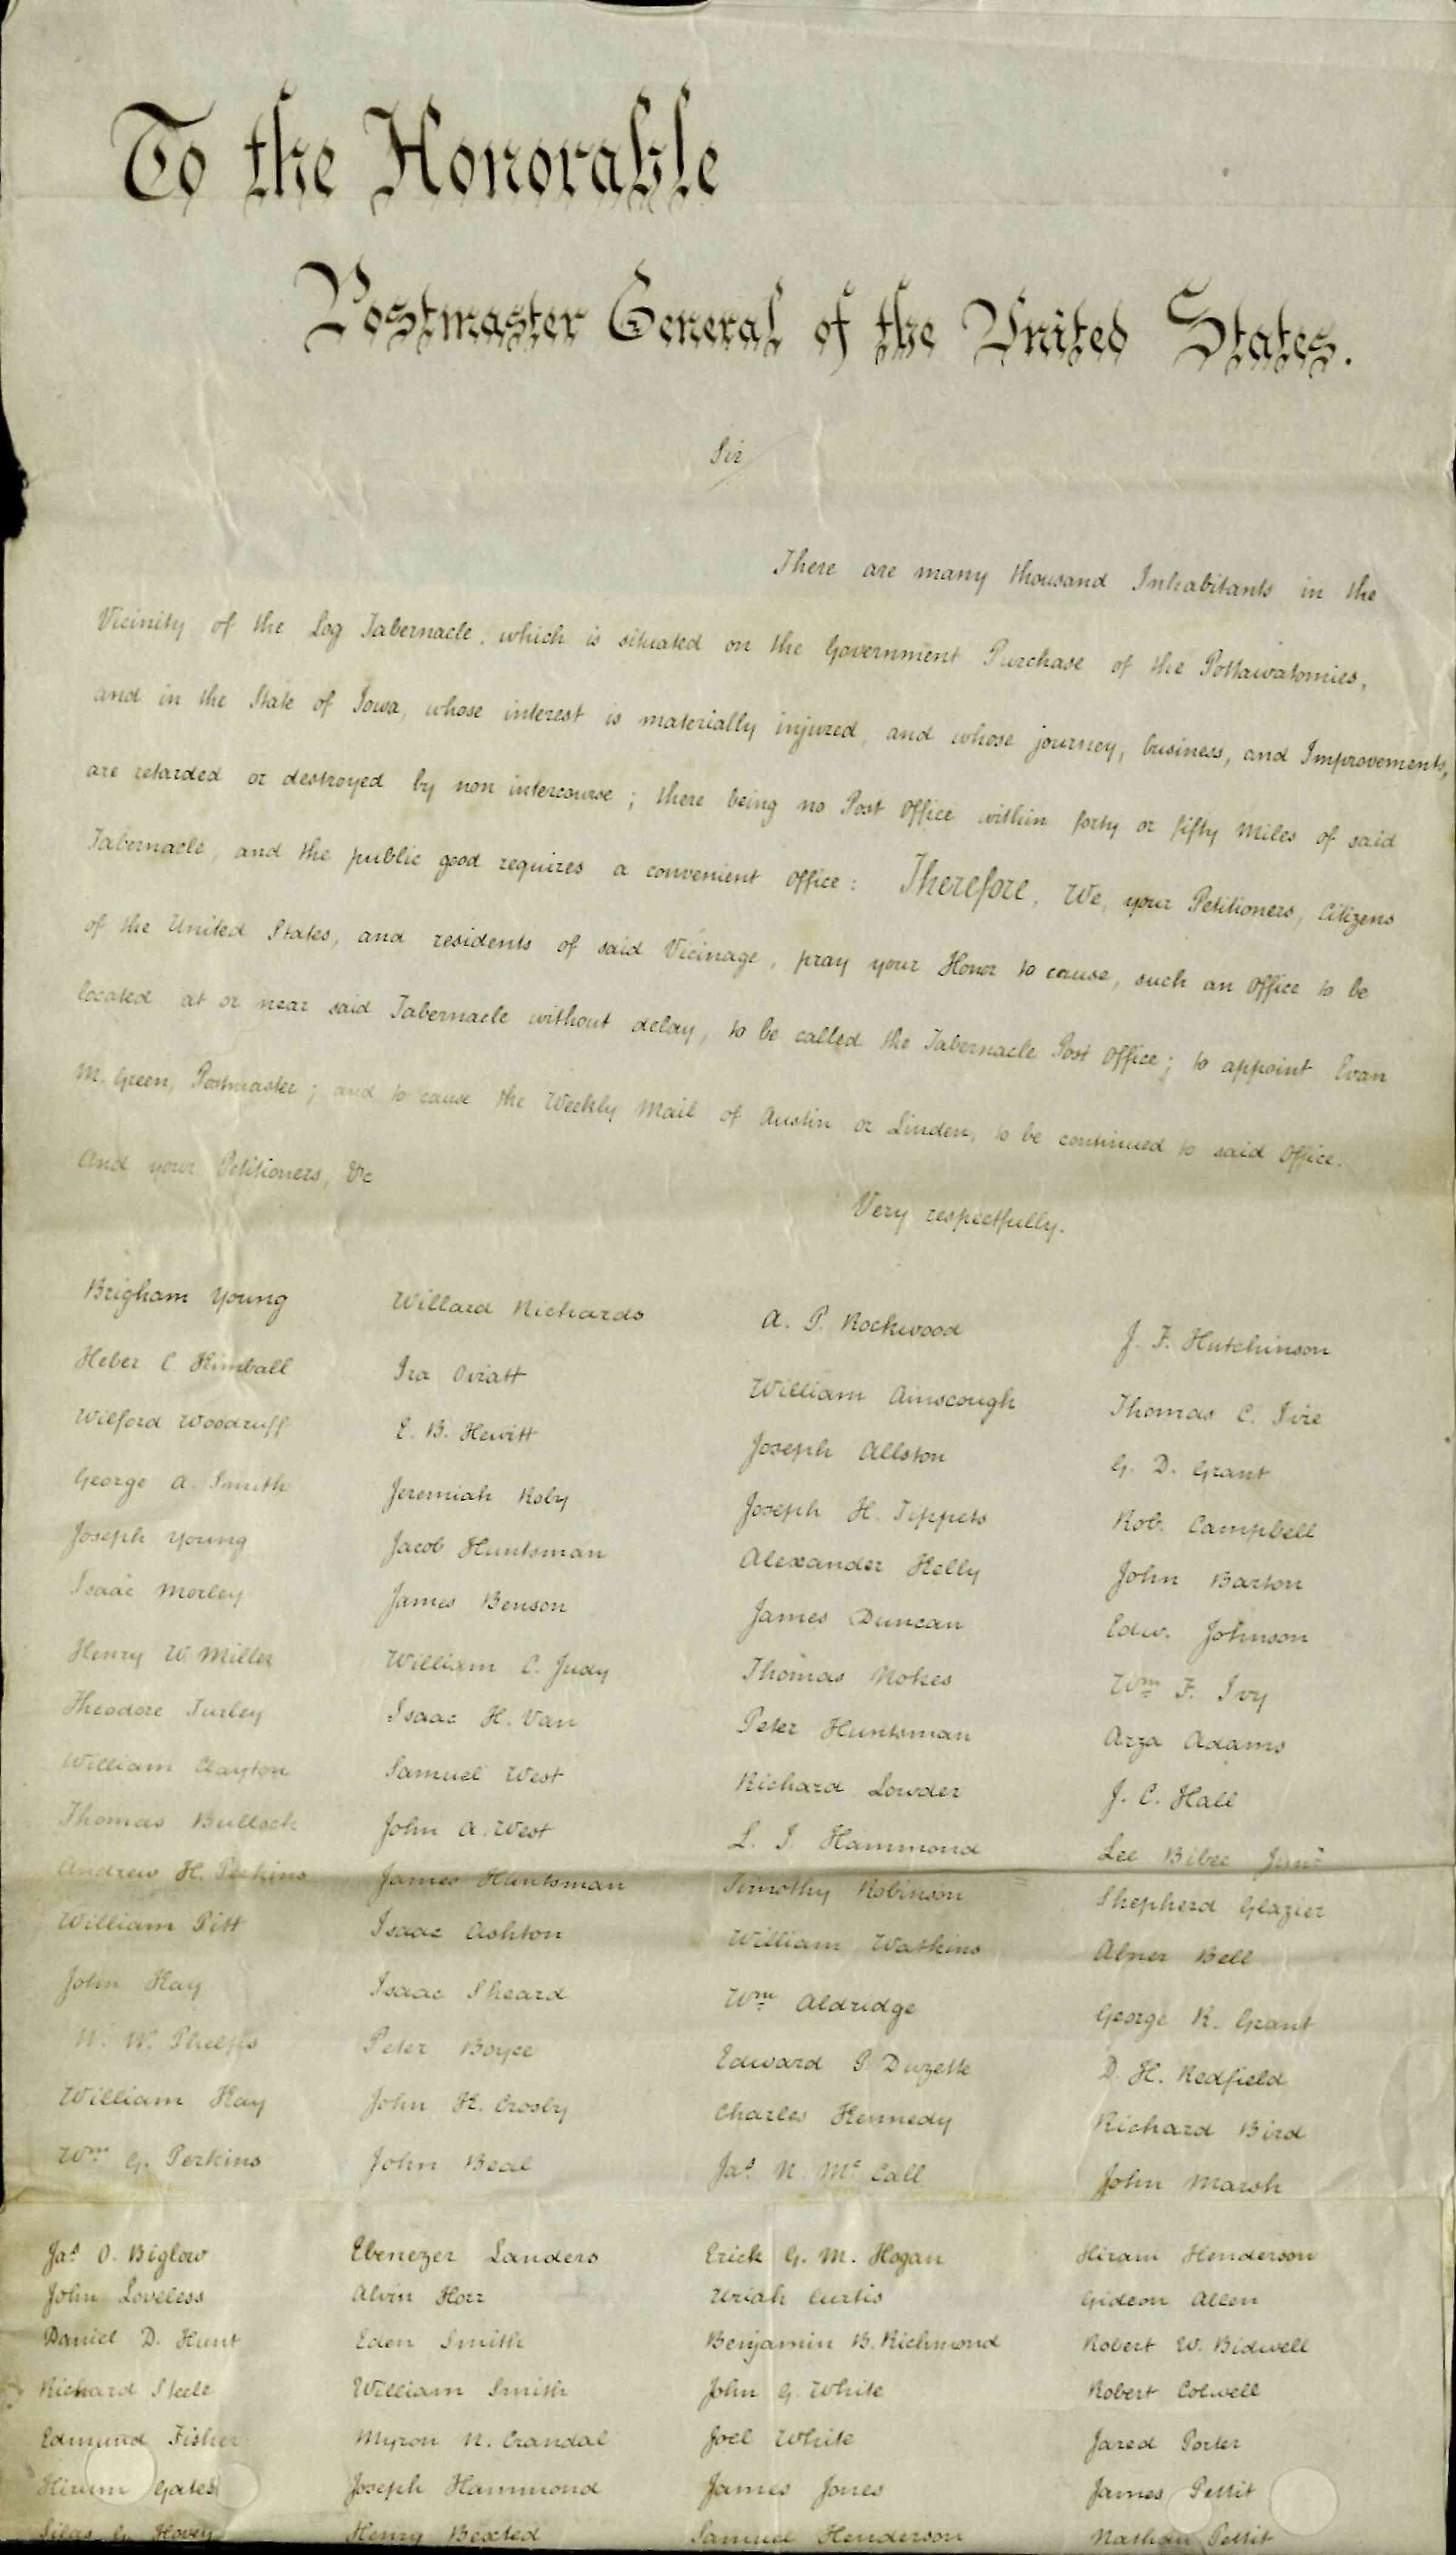 To the Honorable
Postmaster General of the United States.
Sir
There are many thousand Inhabitants in the
Vicinity of the Log Tabernacle, which is situated on the Government Purchase of the Pottawatomies,
and in the State of Iowa, whose interest is materially injured, and whose journey, business, and Improvements,
are retarded or destroyed by non intercourse; there being no Post Office within forty or fifty Miles of said
Tabernacle, and the public good requires a convenient office: Therefore, We, your Petitioners, Citizens
of the United States, and residents of said Vicinage, pray your Honor to cause, such an Office to be
located at or near said Tabernacle without delay, to be called the Tabernacle Post Office; to appoint Evan
M. Green, Postmaster; and to cause the Weekly Mail of Austin or Linden, to be continued to said Office.
And your Petitioners, &c
Very respectfully.
Brigham Young Willard Richards A. P. Rockwood J. F. Hutchinson
Heber C. Kimball Ira Oviatt William Ainscough Thomas C. Ivie
Wilford Woodruff E. B. Hewitt Joseph Allston G. D. Grant
George A. Smith Jeremiah Roby Joseph H. Tippets Rob. Campbell
Joseph Young Jacob Huntsman Alexander Kelly John Barton
Isaac Morley James Benson James Duncan Edw. Johnson
Henry W. Miller William C. Judy Thomas Nokes Wm F. Ivy
Theodore Turley Isaac H. Van Peter Huntsman Arza Adams
William Clayton Samuel West Richard Lowder J. C. Hall
Thomas Bullock John A. West L. I. Hammond Lee Bibee Junr
Andrew H. Perkins James Huntsman Timothy Robinson Shepherd Glazier
William Pitt Isaac Ashton William Watkins Abner Bell
John Kay Isaac Sheard Wm Aldridge George R. Grant
W. W. Phelps Peter Boyce Edward P. Duzette D. H. Redfield
William Kay John K. Crosby Charles Kennedy Richard Bird
Wm G. Perkins John Beal Jas N. Mc Call John Marsh
Jas O. Biglow Ebenezer Landers Erick G. M. Hogan Hiram Henderson
John Loveless Alvin Horr Uriah Curtis Gideon Allen
Daniel D. Hunt Eden Smith Benjamin B. Richmond Robert W. Bidwell
Richard Steele William Smith John G. White Robert Colwell
Edmund Fisher Myron N. Crandal Joel White Jared Porter
Hirum Gates Joseph Hammond James Jones James Pettit
Silas G. Hovey Henry Bexted Samuel Henderson Nathan Pettit